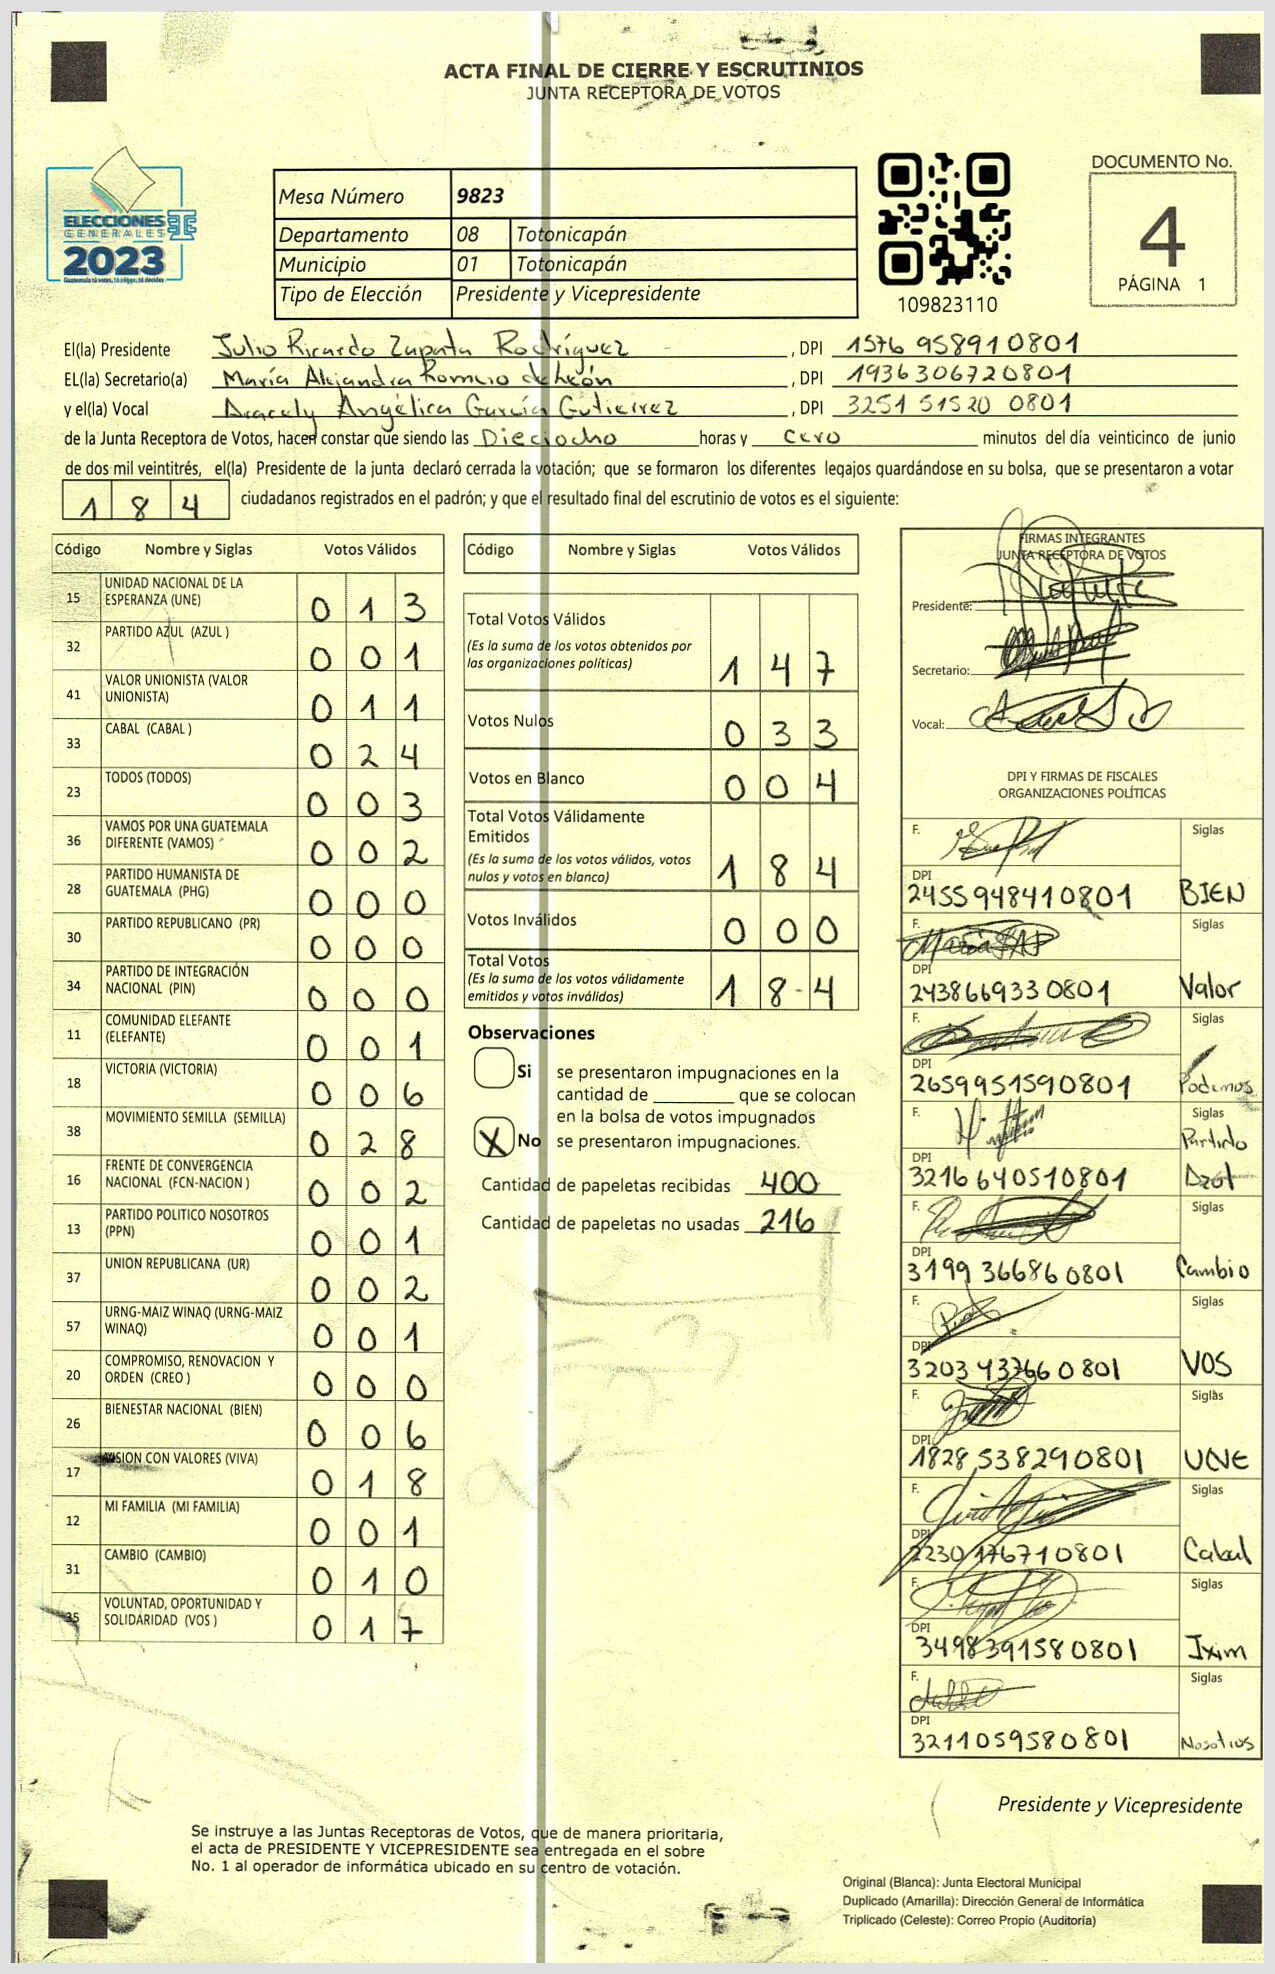 ACTA FINAL DE CIERRE Y ESCRUTINIOS
JUNTA RECEPTORA DE VOTOS
ELECCIONES
GENERALES
2023
Mesa Número 9823
Departamento 08 Totonicapán
Municipio 01 Totonicapán
Tipo de Elección Presidente y Vicepresidente
109823110
DOCUMENTO No.
4
PÁGINA 1
El(la) Presidente Julio Ricardo Zapata Rodríguez , DPI 1576 958910801
EL(la) Secretario(a) María Alejandra Romero de León , DPI 1936306720801
y el(la) Vocal Aracely Angélica García Gutierrez , DPI 3251 51520 0801
de la Junta Receptora de Votos, hacen constar que siendo las Dieciocho horas y cero minutos del día veinticinco de junio
de dos mil veintitrés, el(la) Presidente de la junta declaró cerrada la votación; que se formaron los diferentes legajos guardándose en su bolsa, que se presentaron a votar
184 ciudadanos registrados en el padrón; y que el resultado final del escrutinio de votos es el siguiente:
Código Nombre y Siglas Votos Válidos
15 UNIDAD NACIONAL DE LA ESPERANZA (UNE) 013
32 PARTIDO AZUL (AZUL ) 001
41 VALOR UNIONISTA (VALOR UNIONISTA) 011
33 CABAL (CABAL ) 024
23 TODOS (TODOS) 003
36 VAMOS POR UNA GUATEMALA DIFERENTE (VAMOS) 002
28 PARTIDO HUMANISTA DE GUATEMALA (PHG) 000
30 PARTIDO REPUBLICANO (PR) 000
34 PARTIDO DE INTEGRACIÓN NACIONAL (PIN) 000
11 COMUNIDAD ELEFANTE (ELEFANTE) 001
18 VICTORIA (VICTORIA) 006
38 MOVIMIENTO SEMILLA (SEMILLA) 028
16 FRENTE DE CONVERGENCIA NACIONAL (FCN-NACION ) 002
13 PARTIDO POLITICO NOSOTROS (PPN) 001
37 UNION REPUBLICANA (UR) 002
57 URNG-MAIZ WINAQ (URNG-MAIZ WINAQ) 001
20 COMPROMISO, RENOVACION Y ORDEN (CREO ) 000
26 BIENESTAR NACIONAL (BIEN) 006
17 VISION CON VALORES (VIVA) 018
12 MI FAMILIA (MI FAMILIA) 001
31 CAMBIO (CAMBIO) 010
35 VOLUNTAD, OPORTUNIDAD Y SOLIDARIDAD (VOS ) 017
Código Nombre y Siglas Votos Válidos
Total Votos Válidos 147
(Es la suma de los votos obtenidos por
las organizaciones políticas)
Votos Nulos 033
Votos en Blanco 004
Total Votos Válidamente
Emitidos 184
(Es la suma de los votos válidos, votos
nulos y votos en blanco)
Votos Inválidos 000
Total Votos 18-4
(Es la suma de los votos válidamente
emitidos y votos inválidos)
Observaciones
Si se presentaron impugnaciones en la
cantidad de ________ que se colocan
en la bolsa de votos impugnados
X No se presentaron impugnaciones.
Cantidad de papeletas recibidas 400
Cantidad de papeletas no usadas 216
FIRMAS INTEGRANTES
JUNTA RECEPTORA DE VOTOS
Presidente:
Secretario:
Vocal:
DPI Y FIRMAS DE FISCALES
ORGANIZACIONES POLÍTICAS
F. Siglas
DPI
2455948410801 BIEN
F. Siglas
DPI
2438669330801 Valor
F. Siglas
DPI
2659951590801 Podemos
F. Siglas
Partido
DPI
3216640510801 Azul
F. Siglas
DPI
3199 366860801 Cambio
F. Siglas
DPI
3203 43766 0801 VOS
F. Siglas
DPI
1828538290801 UNE
F. Siglas
DPI
2230176710801 Cabal
F. Siglas
DPI
3498391580801 Ixim
F. Siglas
DPI
3211059580801 Nosotros
Presidente y Vicepresidente
Se instruye a las Juntas Receptoras de Votos, que de manera prioritaria,
el acta de PRESIDENTE Y VICEPRESIDENTE sea entregada en el sobre
No. 1 al operador de informática ubicado en su centro de votación.
Original (Blanca): Junta Electoral Municipal
Duplicado (Amarilla): Dirección General de Informática
Triplicado (Celeste): Correo Propio (Auditoría)